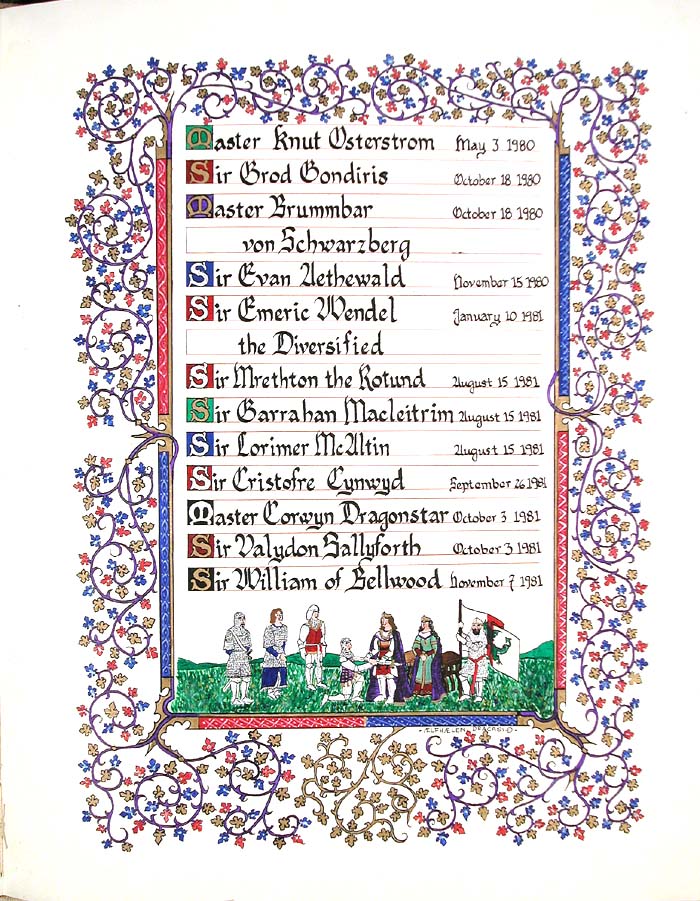 Master Knut Osterstrom May 3 1980
Sir Brod Gondiris October 18 1980
Master Brummbar October 18 1980
von Schwarzberg
Sir Evan Aethewald November 15 1980
Sir Emeric Wendel January 10 1981
the Diversified
Sir Mrethton the Rotund August 15 1981
Sir Garrahan Macleitrim August 15 1981
Sir Lorimer McAltin August 15 1981
Sir Cristofre Cynwyd September 26 1981
Master Corwyn Dragonstar October 3 1981
Sir Valydon Sallyforth October 3 1981
Sir William of Bellwood November 7 1981